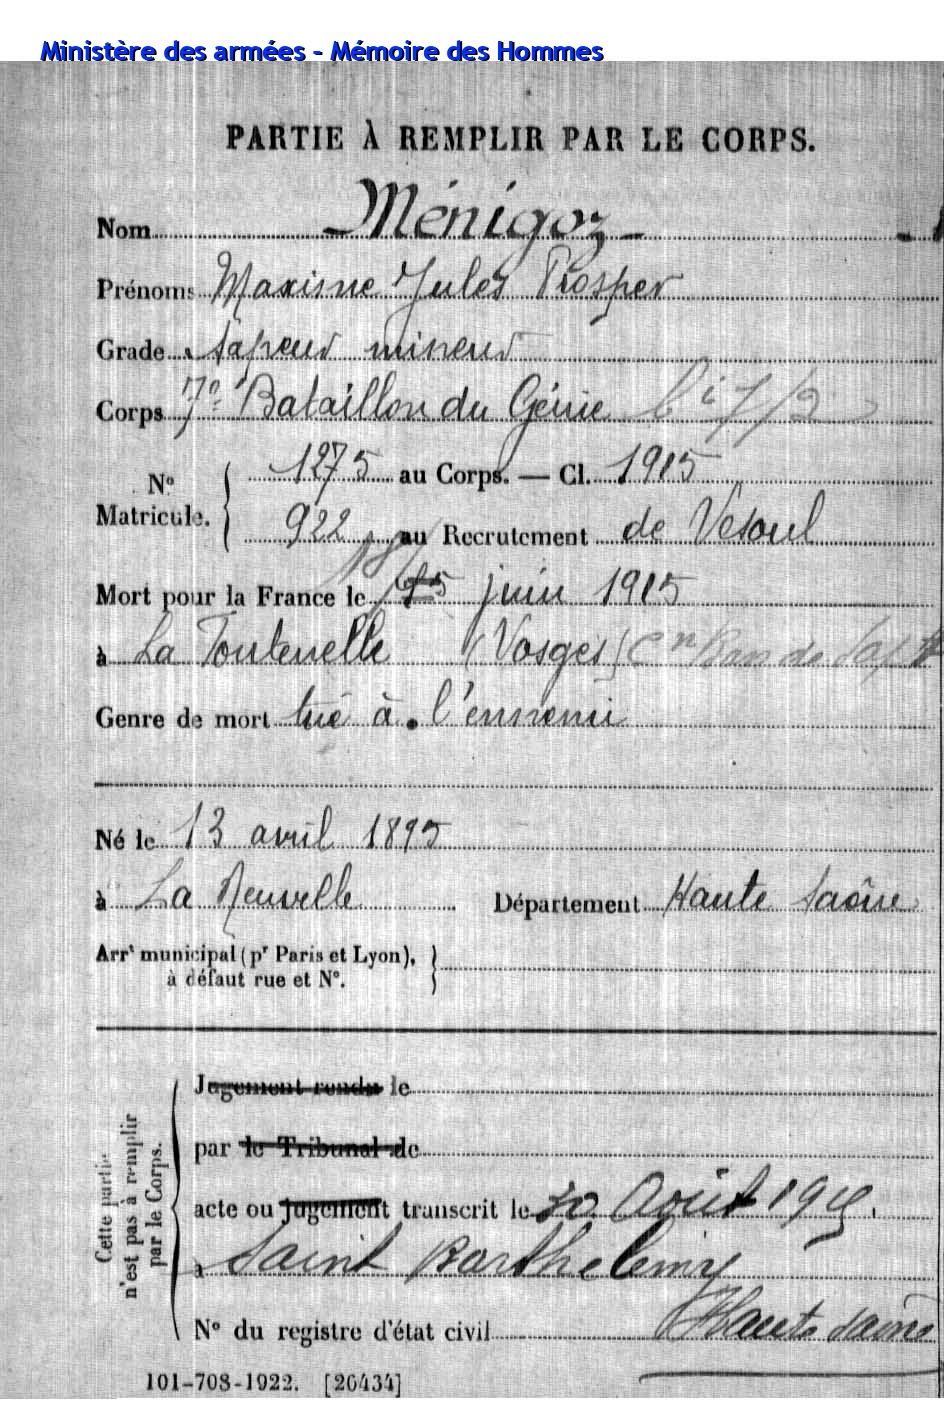 Ministère des armées - Mémoire des Hommes
PARTIE À REMPLIR PAR LE CORPS.
Nom Ménigoz
Prénoms Maxisme Jules Prosper
Grade Sapeur mineur
Corps 7e Bataillon du Génie Cie 7/2
No Matricule. 1275 au Corps. — Cl. 1915
922 au Recrutement de Vesoul
Mort pour la France le 18 juin 1915
à La Fontenelle (Vosges) Cne Ban de Sapt
Genre de mort tué à l'ennemi
Né le 13 avril 1895
à La Neuvelle Département Haute Saône
Arrt municipal (pr Paris et Lyon),
à défaut rue et No.
Cette partie
n'est pas à remplir
par le Corps.
Jugement rendu le
par le Tribunal de
acte ou jugement transcrit le 30 Août 1915.
à Saint Barthelemy
Haute Saône
No du registre d'état civil
101-708-1922. [26434]